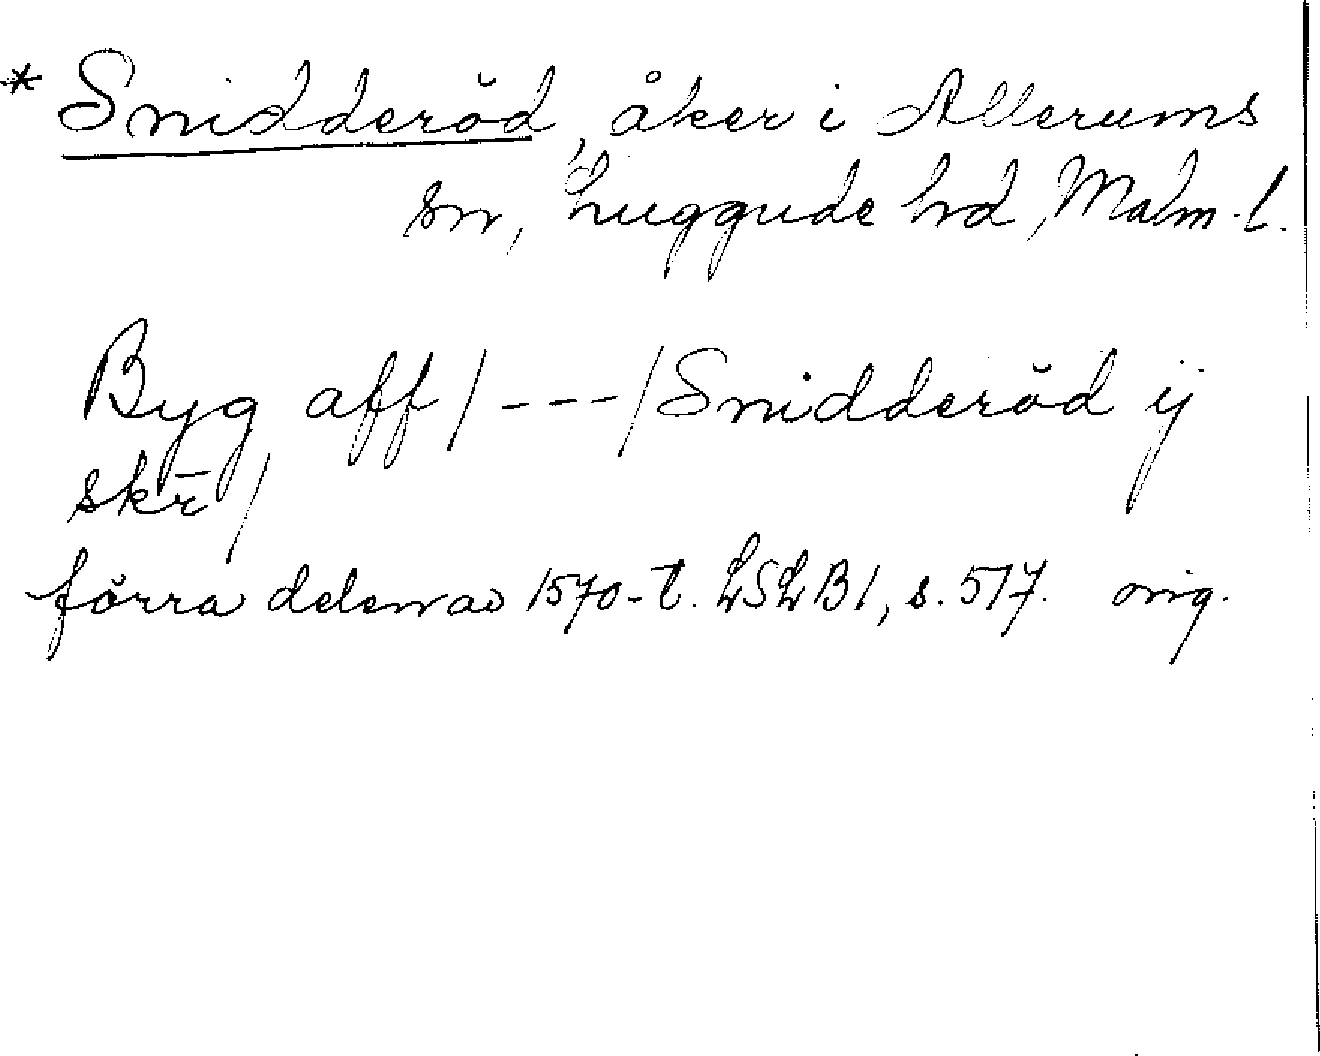 * Snidderöd, åker i Allerums
sn, Luggude hd, Malm.l.
Byg aff / --- / Snidderöd ij
skr̄ /
förra delen av 1570-t. LSLB1, s. 517. orig.